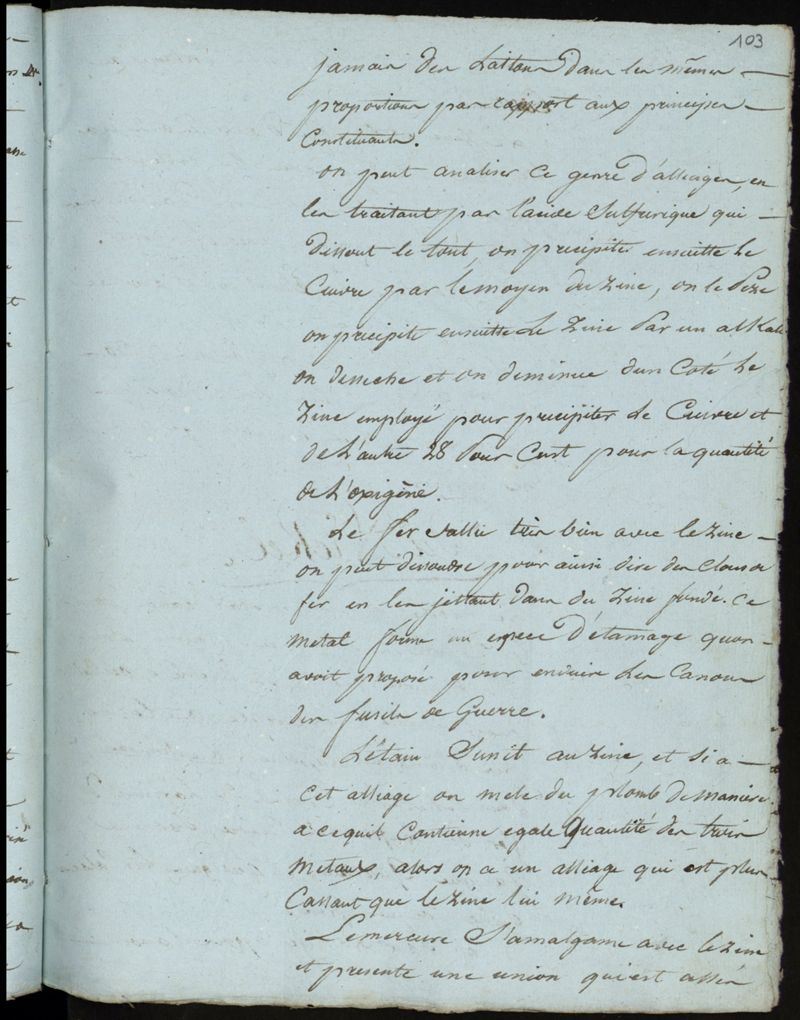 103
jamais des Laitons dans les mêmes —
proportions par rapport aux principes —
Constituants.
on peut analiser ce genre d'alliages, en
les traitant par l'acide Sulfurique qui —
dissout le tout, on précipite ensuitte le
Cuivre par le moyen du Zinc, on le Peze
on précipite ensuitte le Zinc Par un alkali
on desseche et on deminue d'un Coté le
Zinc employé pour précipiter le Cuivre et
de L'autre 28 Pour Cent pour la quantité
de L'oxigène.
Le fer s'allie très bien avec le Zinc —
on peut dissoudre pour ainsi dire des Clous de
fer en les jettant dans du Zinc fondu. Ce
metal forme un espece D'étamage qu'on —
avoit proposé pour enduire les Canons
des fusils de Guerre.
L'étain S'unit au Zinc, et si a —
cet alliage on mele du plomb de maniere
a ce quil Contienne egale Quantité des trois
metaux, alors on a un alliage qui est plus
Cassant que le Zinc lui même.
Le mercure S'amalgame avec le Zinc
et presente une union qui est assés